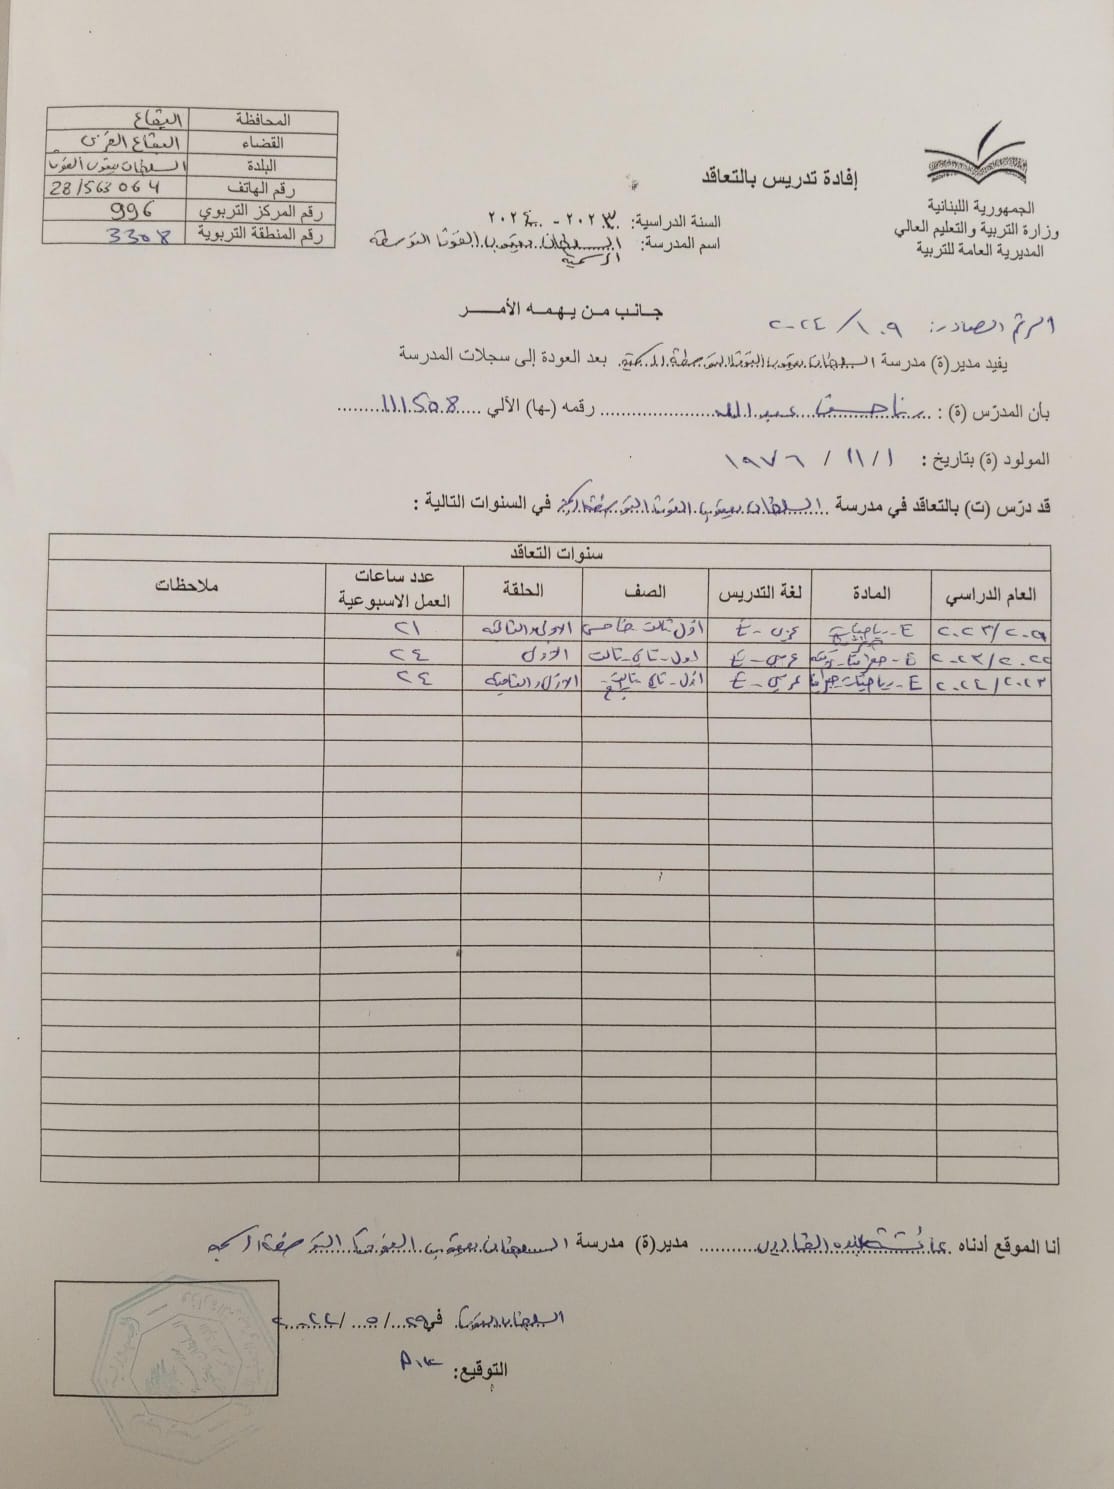 الجمهورية اللبنانية
وزارة التربية والتعليم العالي
المديرية العامة للتربية
إفادة تدريس بالتعاقد
السنة الدراسية: ٢٠٢٣ - ٢٠٢٤
اسم المدرسة: السلطان يعقوب الفوقا المتوسطة
الرسمية
المحافظة البقاع
القضاء البقاع الغربي
البلدة السلطان يعقوب الفوقا
رقم الهاتف 28/563064
رقم المركز التربوي 996
رقم المنطقة التربوية 3308
جانب من يهمه الأمر
الرقم الصادر: ١٠٩/ ٢٠٢٤
يفيد مدير(ة) مدرسة السلطان يعقوب الفوقا المتوسطة الرسمية بعد العودة إلى سجلات المدرسة
بأن المدرّس (ة) : رنا حسن عبدالله رقمه (ـها) الآلي 111508
المولود (ة) بتاريخ : ١ / ١١ / ١٩٧٦
قد درّس (ت) بالتعاقد في مدرسة السلطان يعقوب الفوقا المتوسطة في السنوات التالية :
سنوات التعاقد
العام الدراسي المادة لغة التدريس الصف الحلقة عدد ساعات العمل الاسبوعية ملاحظات
E - رياضيات عربي - E أول ثالث خامس الاولى والثانية ٢١
٢٠٢٢/٢٠٢٣ E - جغرافيا - عربي - E اول - ثاني - ثالث الاولى ٢٤
٢٠٢٣/٢٠٢٤ E - رياضيات - جغرافيا عربي - E أول - ثاني - ثالث الاولى والثانية ٢٤
أنا الموقع أدناه مدير(ة) مدرسة السلطان يعقوب الفوقا المتوسطة الرسمية
السلطان يعقوب في ٢٩/ ٥ /
التوقيع: